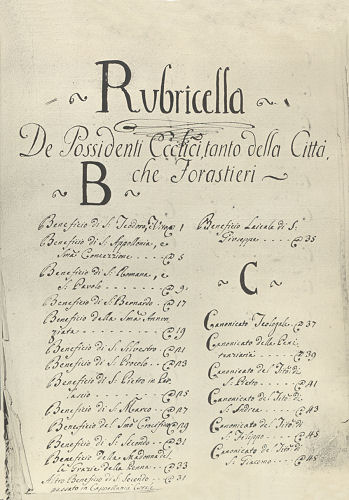 Rubricella
De Possidenti Ecclici, tanto della Città,
che Forastieri
B
Beneficio di S. Teodoro, 1
Beneficio di S. Appollonia, e
Sma Concezzione . . . . 5
Beneficio di S. Romana, e
S. Pavolo . . . . . . . 9
Beneficio di S. Bernardo . 17
Beneficio della Sma Annun
ziata . . . . . . . . 19
Beneficio di S. Silvestro . 21
Beneficio di S. Procolo . . 23
Beneficio di S. Pietro in
. . . . . . . 25
Beneficio di S. Marco . . . 27
Beneficio del Smo Crocifisso 29
Beneficio di S. Secondo . . 31
Beneficio della Madonna del
le Grazie della Penna . . 33
Altro Beneficio di S. Secondo . 31
passato in Cappellania
Beneficio Laicale di S.
Giuseppe . . . . . 35
C
Canonicato Teologale . 37
Canonicato della Peni
tenziaria . . . . . 39
Canonicato del Tito. di
S. Pietro . . . . . 41
Canonicato del Tito. di
S. Andrea . . . . . 43
Canonicato del Tito. di
S. Filippo . . . . . 45
Canonicato del Tito. di
S. Giacomo . . . . . 45